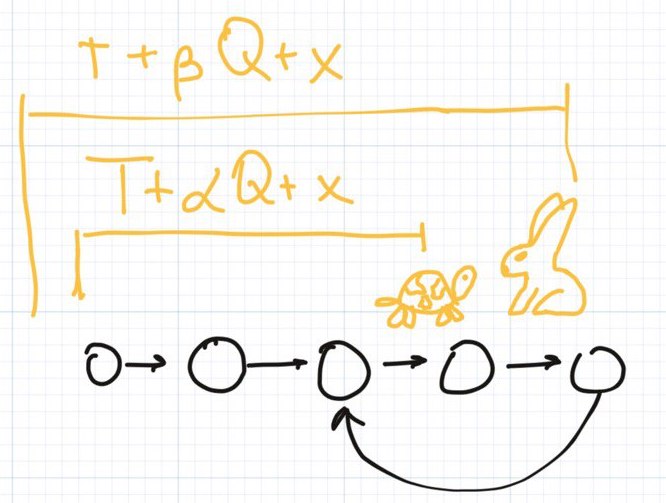 T + β Q + x
T + α Q + x